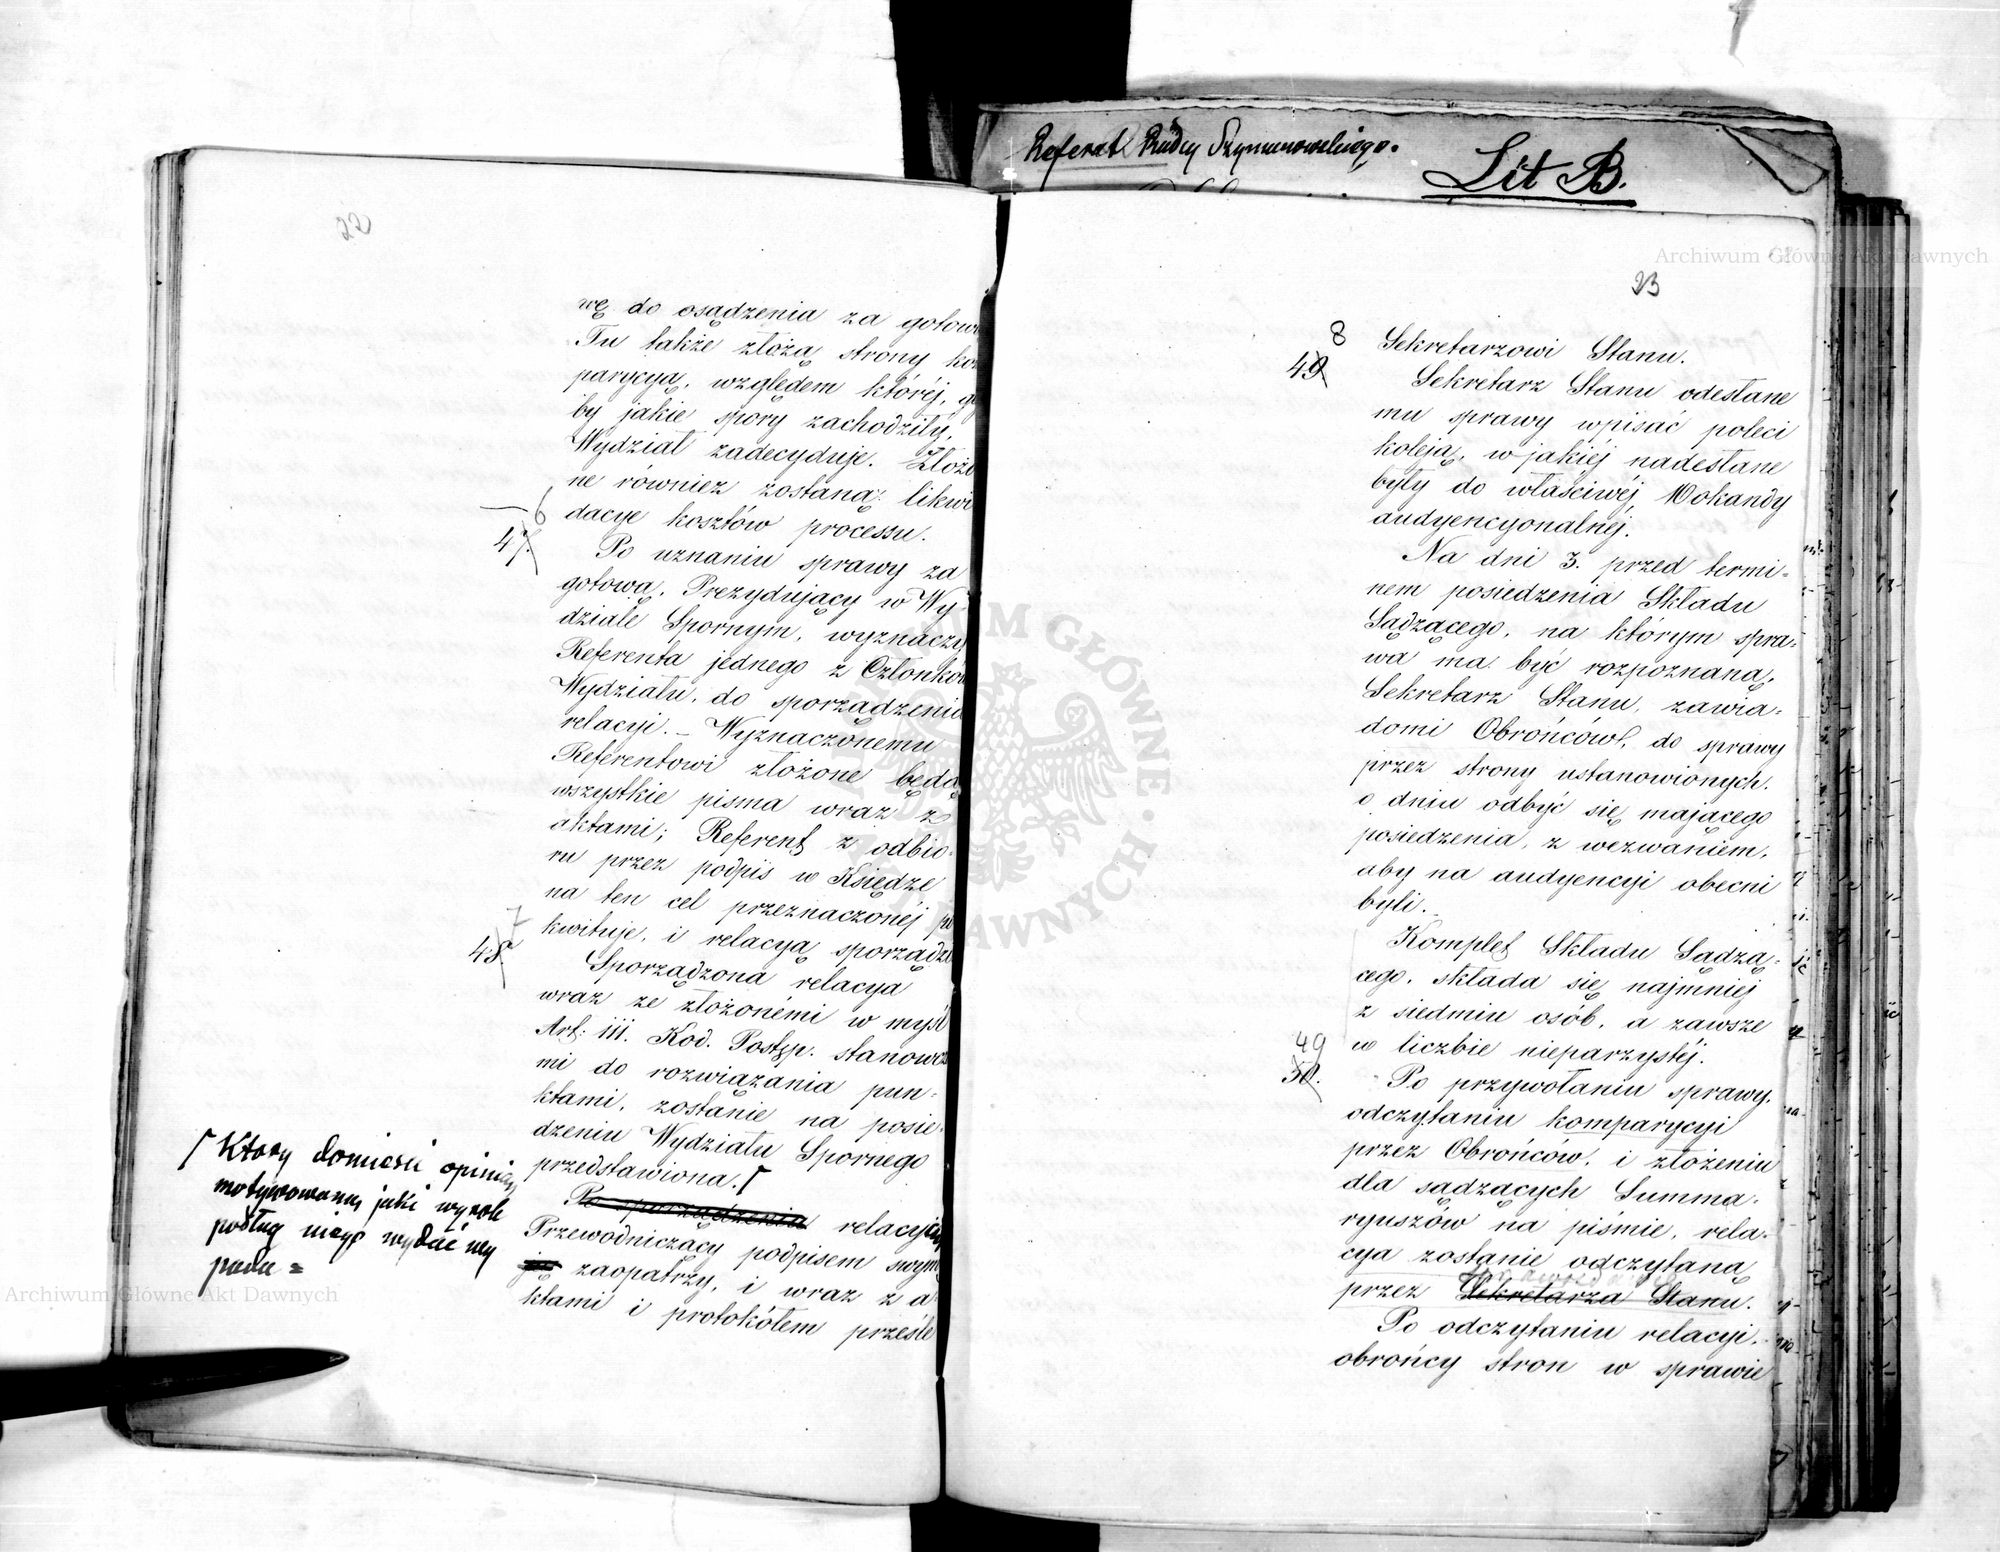 Referat Radcy Szymanowskiego.
Lit B.
22
wę do osądzenia za gotow
Tu także złożą strony kom
parycyą, względem któréj, gd
by jakie spory zachodziły,
Wydział zadecyduje. Złożo
ne również zostaną likwi
dacye kosztów processu.
6
47.
Po uznaniu sprawy za
gotową, Prezydujący w Wy-
dziale Spornym, wyznaczy
Referenta jednego z Członków
Wydziału, do sporządzenia
relacyi. – Wyznaczonemu
Referentowi złożone będą
wszystkie pisma wraz z
aktami; Referent z odbio-
ru przez podpis w Księdze
na ten cel przeznaczonéj po
kwituje, i relacyą sporządzi
7
48.
Sporządzona relacya
wraz ze złożonémi w myśl
Art: 111. Kod. Postęp. stanowcze
mi do rozwiązania pun-
ktami, zostanie na posie-
dzeniu Wydziału Spornego
przedstawiona.
Po sporządzeniu relacyi
Przewodniczący podpisem swym
ją zaopatrzy, i wraz z a
ktami i protokółem prześle
Który domieści opinią
motywowaną jaki wyrok
podług niego wydać wy
pada =
23
Sekretarzowi Stanu.
8
49
Sekretarz Stanu odesłane
mu sprawy wpisać poleci
koleją, w jakiéj nadesłane
były do właściwéj Wokandy
audyencyonalnéj.
Na dni 3. przed termi-
nem posiedzenia Składu
Sądzącego, na którym spra-
wa ma być rozpoznaną,
Sekretarz Stanu, zawia-
domi Obrońców, do sprawy
przez strony ustanowionych,
o dniu odbyć się mającego
posiedzenia, z wezwaniem,
aby na audyencyi obecni
byli.
Komplet Składu Sądzą-
cego, składa się najmniej
z siedmiu osób, a zawsze
w liczbie nieparzystéj.
49
50.
Po przywołaniu sprawy,
odczytaniu komparycyi
przez Obrońców, i złożeniu
dla sądzących Summa-
ryuszów na piśmie, rela-
cya zostanie odczytaną
przez Sekretarza Stanu.
Po odczytaniu relacyi,
obrońcy stron w sprawie
Archiwum Główne Akt Dawnych
Archiwum Główne Akt Dawnych
ARCHIWUM GŁÓWNE AKT DAWNYCH